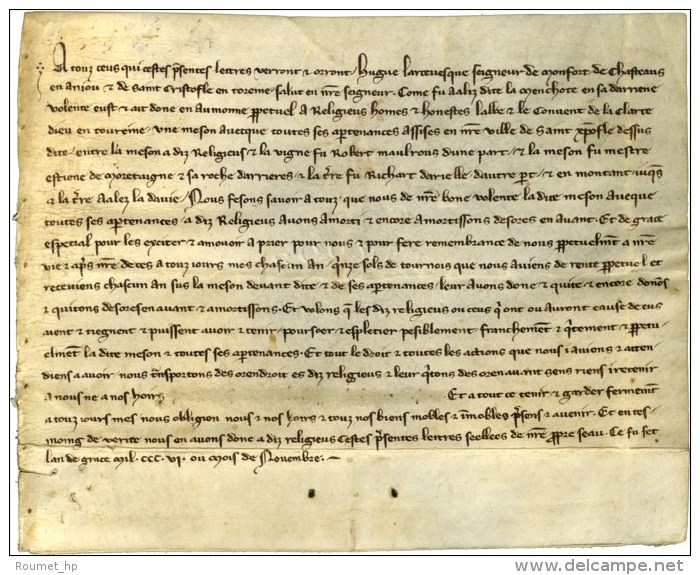 A touz ceus qui cestes p̃sentes lettres verront & orront. Hugue larcevesque seigneur de Monfort de Chasteaus
en aniou & de saint Cristofle en toreine. salut en nr̃e seigneur. Come fu aaliz dite la Menchote en sa darriene
volente eust & ait done en aumonne p̱petuel a Religieus homes & honestes labbe & le Convent de la Clarte
dieu en toureine. une meson avecque toutes ses apertenances assises en nr̃e ville de Saint xp̃ofle dessus
dite. entre la meson a diz Religieus & la vigne fu Robert maulrous dune part. & la meson fu mestre
estiene de & sa roche darrieres & la t̃re fu Richart darielle dautre p̱t. & en montant iuq̃s
a la t̃re aalez la davie. Nous fesons savoir a touz que nous de nr̃e bone volente la dite meson aveque
toutes ses apertenances a diz Religieus avons amorti & encore amortissons desores en avant. Et de grace
especial pour les exciter & amovoir a prier pour nous & pour fere remembrance de nous p̱petuelm̃t a nr̃e
vie & ap̃s nr̃e deces a touz iours mes chascun an quinze sols de tournois que nous aviens de rente p̱petuel et
receviens chascun an sus la meson devant dite & de ses apertenances. leur avons done & quite & encore donõs
& quitons desoresenavant & amortissons. Et volons q̃ les diz religieus ou ceus q̃ ont ou auront cause de eus
aient & tiegnent & puissent avoir & tenir. pourseer & espletier pesiblement franchement & quitement & p̱petu-
elm̃et la dite meson & toutes ses apertenances. Et tout le droit & toutes les actions que nous i avions & atten-
diens a avoir. nous trãsportons des orendroit es diz religieus & leur quitons des oren avant sens riens i retenir
a nous ne a nos hoirs Et a tout ce tenir & garder fermem̃t
a touz iours mes nous obligion nous & nos hoirs & touz nos biens mobles & nõmobles p̃sens & avenir. Et en tes-
moing de verite nous en avons done a diz religieus cestes p̃sentes lettres seellees de nr̃e p̱pre seau. Ce fu fet
lan de grace mil. CCC. VI. ou mois de Novembre.
Roumet_hp
www.delcampe.net